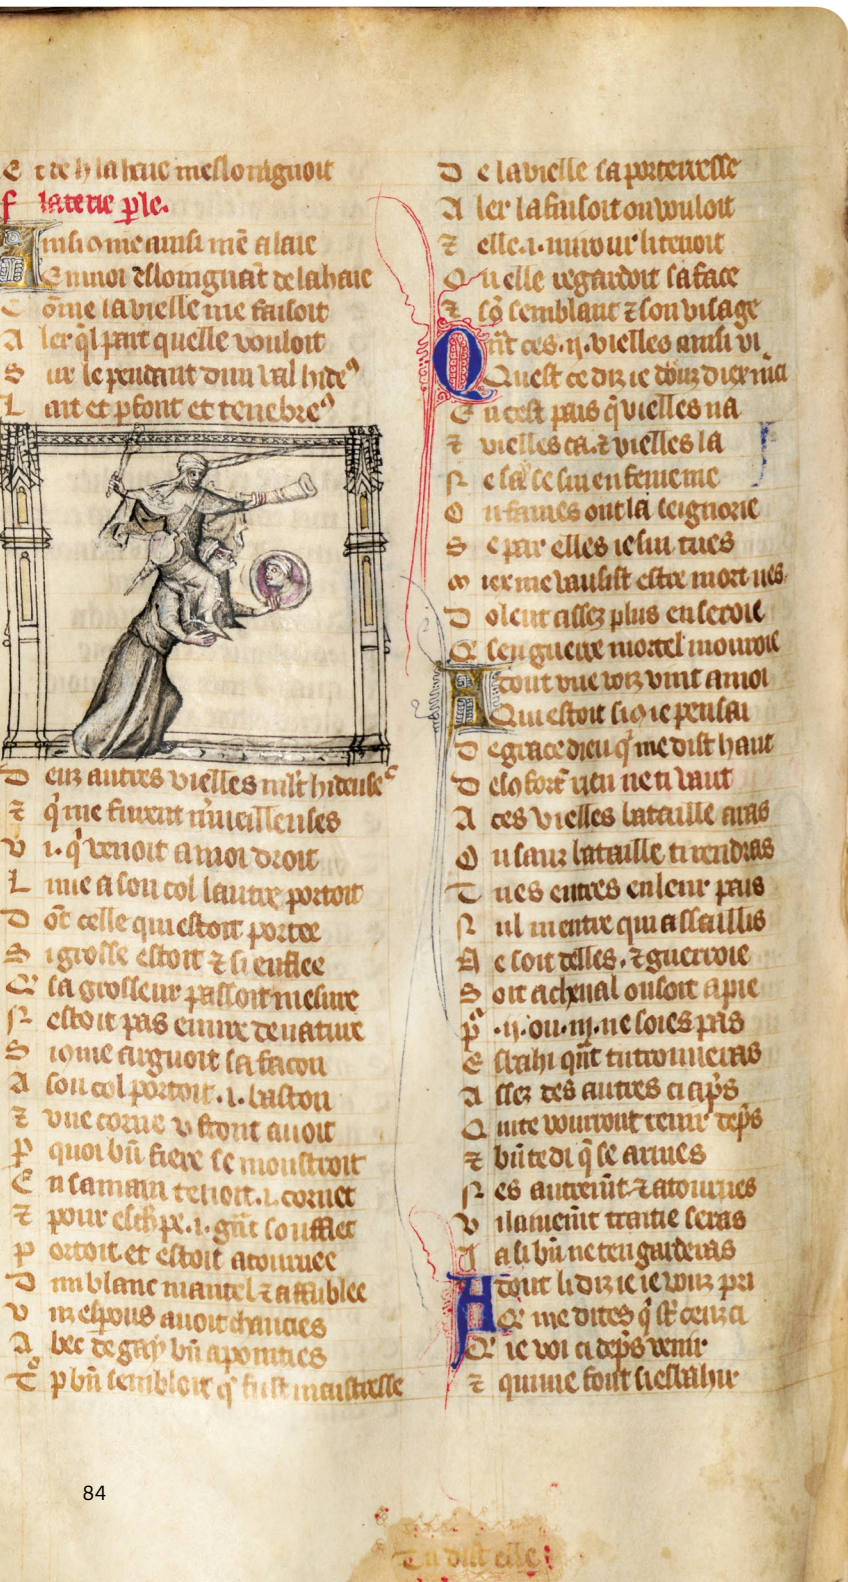 E t de la haie meslongnoit
f laterie ple.
A insi come ainsi me alaie
E n moi eslongnant de la haie
C ome la vielle me faisoit
A ler ql part quelle vouloit
S ur le pendant dun val hide
L ait et pfont et tenebre
D eux autres vielles mlt hideuse
⁊ q me furent mueilleuses
V i. q venoit a moi droit
L une a son col lautre portoit
D ot celle qui estoit portee
S i grosse estoit ⁊ si enflee
Q sa grosseur passoit mesure
N estoit pas euure de nature
S i come iuguoit sa facon
A son col portoit .i. baston
⁊ une corne v front auoit
P quoi bn fiere se monstroit
E n sa main tenoit .i. cornet
⁊ pour .i. gnt soufflet
P ortoit et estoit atournee
D un blanc mantel ⁊ affublee
V nz espons auoit chaucies
A bec de gay bn apointies
T p bn sembloit q fust maistresse
D e la vielle sa porteresse
A ler la faisoit ou vouloit
⁊ elle .i. mirour li tenoit
Q u elle regardoit sa face
⁊ so semblant ⁊ son visage
Q nt ces .ij. vielles ainsi vi
Q uest ce diz ie douz diex
E n cest pais q vielles na
⁊ vielles ca. ⁊ vielles la
N e sai se sui en femenie
O u fames ont la seignorie
S e par elles ie sui tues
M iex me vausist estre mort nes
D olent assez plus en seroie
Q se en guerre mortel mouroie
A tout une voiz vint a moi
Q ui estoit si come ie pensai
D e grace dieu q me dist haut
D efort rien ne ti vaut
A ces vielles bataille aras
O u sanz bataille ti rendras
T u es entres en leur pais
N ul ni entre qui assaillis
N e soit delles. ⁊ guerroie
S oit a cheual ou soit a pie
P .ij. ou .iij. ne soies pas
E sbahi qnt tu trouueras
A ssez des autres ci aps
Q ui te vourront tenir de ps
⁊ bn te di q se armes
N es autremt ⁊ atournes
V ilainemt traitie seras
I a si bn ne ten garderas
A dont li diz ie ie vous pri
Q me dites q st ceuz ci
Q ie voi ci de ps venir
⁊ qui me font si esbahir
84
Tu dist elle